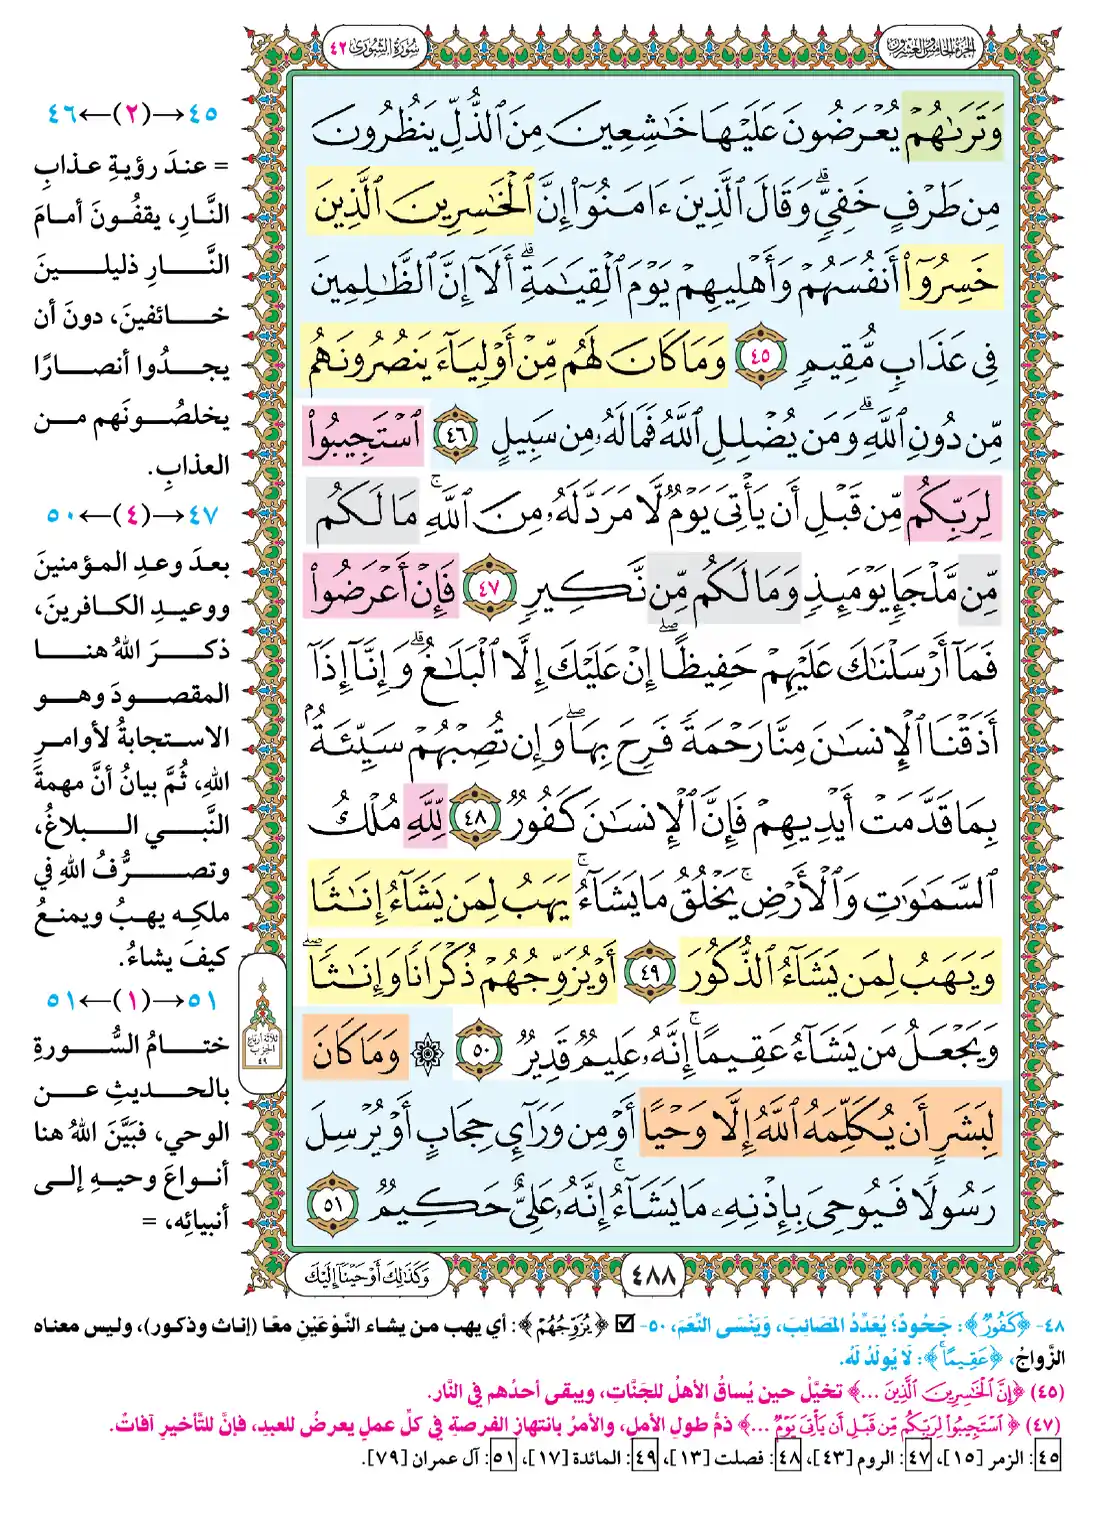 الجزء الخامس والعشرون
سورة الشورى ٤٢
وَتَرَىٰهُمْ يُعْرَضُونَ عَلَيْهَا خَٰشِعِينَ مِنَ ٱلذُّلِّ يَنظُرُونَ
مِن طَرْفٍ خَفِىٍّ ۗ وَقَالَ ٱلَّذِينَ ءَامَنُوٓا۟ إِنَّ ٱلْخَٰسِرِينَ ٱلَّذِينَ
خَسِرُوٓا۟ أَنفُسَهُمْ وَأَهْلِيهِمْ يَوْمَ ٱلْقِيَٰمَةِ ۗ أَلَآ إِنَّ ٱلظَّٰلِمِينَ
فِى عَذَابٍ مُّقِيمٍ ٤٥ وَمَا كَانَ لَهُم مِّنْ أَوْلِيَآءَ يَنصُرُونَهُم
مِّن دُونِ ٱللَّهِ ۗ وَمَن يُضْلِلِ ٱللَّهُ فَمَا لَهُۥ مِن سَبِيلٍ ٤٦ ٱسْتَجِيبُوا۟
لِرَبِّكُم مِّن قَبْلِ أَن يَأْتِىَ يَوْمٌ لَّا مَرَدَّ لَهُۥ مِنَ ٱللَّهِ ۚ مَا لَكُم
مِّن مَّلْجَإٍ يَوْمَئِذٍ وَمَا لَكُم مِّن نَّكِيرٍ ٤٧ فَإِنْ أَعْرَضُوا۟
فَمَآ أَرْسَلْنَٰكَ عَلَيْهِمْ حَفِيظًا ۖ إِنْ عَلَيْكَ إِلَّا ٱلْبَلَٰغُ ۗ وَإِنَّآ إِذَآ
أَذَقْنَا ٱلْإِنسَٰنَ مِنَّا رَحْمَةً فَرِحَ بِهَا ۖ وَإِن تُصِبْهُمْ سَيِّئَةٌۢ
بِمَا قَدَّمَتْ أَيْدِيهِمْ فَإِنَّ ٱلْإِنسَٰنَ كَفُورٌ ٤٨ لِّلَّهِ مُلْكُ
ٱلسَّمَٰوَٰتِ وَٱلْأَرْضِ ۚ يَخْلُقُ مَا يَشَآءُ ۚ يَهَبُ لِمَن يَشَآءُ إِنَٰثًا
وَيَهَبُ لِمَن يَشَآءُ ٱلذُّكُورَ ٤٩ أَوْ يُزَوِّجُهُمْ ذُكْرَانًا وَإِنَٰثًا ۖ
وَيَجْعَلُ مَن يَشَآءُ عَقِيمًا ۚ إِنَّهُۥ عَلِيمٌ قَدِيرٌ ٥٠ ۞ وَمَا كَانَ
لِبَشَرٍ أَن يُكَلِّمَهُ ٱللَّهُ إِلَّا وَحْيًا أَوْ مِن وَرَآئِ حِجَابٍ أَوْ يُرْسِلَ
رَسُولًا فَيُوحِىَ بِإِذْنِهِۦ مَا يَشَآءُ ۚ إِنَّهُۥ عَلِىٌّ حَكِيمٌ ٥١
٤٨٨
وَكَذَٰلِكَ أَوْحَيْنَآ إِلَيْكَ
ثلاثة أرباع
الحزب
٤٩
٤٥→(٢)←٤٦
= عندَ رؤيةِ عذابِ
النَّارِ، يقفُونَ أمامَ
النَّارِ ذليلينَ
خائفينَ، دونَ أن
يجدُوا أنصارًا
يخلصُونَهم من
العذابِ.
٤٧→(٤)←٥٠
بعدَ وعدِ المؤمنينَ
ووعيدِ الكافرينَ،
ذكرَ اللهُ هنا
المقصودَ وهو
الاستجابةُ لأوامرِ
اللهِ، ثُمَّ بيانُ أنَّ مهمةَ
النَّبي البلاغُ،
وتصرُّفُ اللهِ في
ملكِه يهبُ ويمنعُ
كيفَ يشاءُ.
٥١→(١)←٥١
ختامُ السُّورةِ
بالحديثِ عن
الوحي، فبَيَّنَ اللهُ هنا
أنواعَ وحيهِ إلى
أنبيائِه، =
٤٨- ﴿كَفُورٌ﴾: جَحُودٌ؛ يُعَدِّدُ المَصَائِبَ، وَيَنْسَى النِّعَمَ، ٥٠- ☑ ﴿يُزَوِّجُهُمْ﴾: أي يهب من يشاء النَّوْعَيْنِ معًا (إناث وذكور)، وليس معناه
الزَّواجُ، ﴿عَقِيمًا﴾: لَا يُولَدُ لَهُ.
(٤٥) ﴿إِنَّ ٱلْخَٰسِرِينَ ٱلَّذِينَ ...﴾ تخيَّل حين يُساقُ الأهلُ للجَنَّاتِ، ويبقى أحدُهم في النَّار.
(٤٧) ﴿ٱسْتَجِيبُوا۟ لِرَبِّكُم مِّن قَبْلِ أَن يَأْتِىَ يَوْمٌ ...﴾ ذمُّ طولِ الأملِ، والأمرُ بانتهازِ الفرصةِ في كلِّ عملٍ يعرضُ للعبدِ، فإنَّ للتَّأخيرِ آفاتٌ.
٤٥: الزمر [١٥]، ٤٧: الروم [٤٣]، ٤٨: فصلت [١٣]، ٤٩: المائدة [١٧]، ٥١: آل عمران [٧٩].